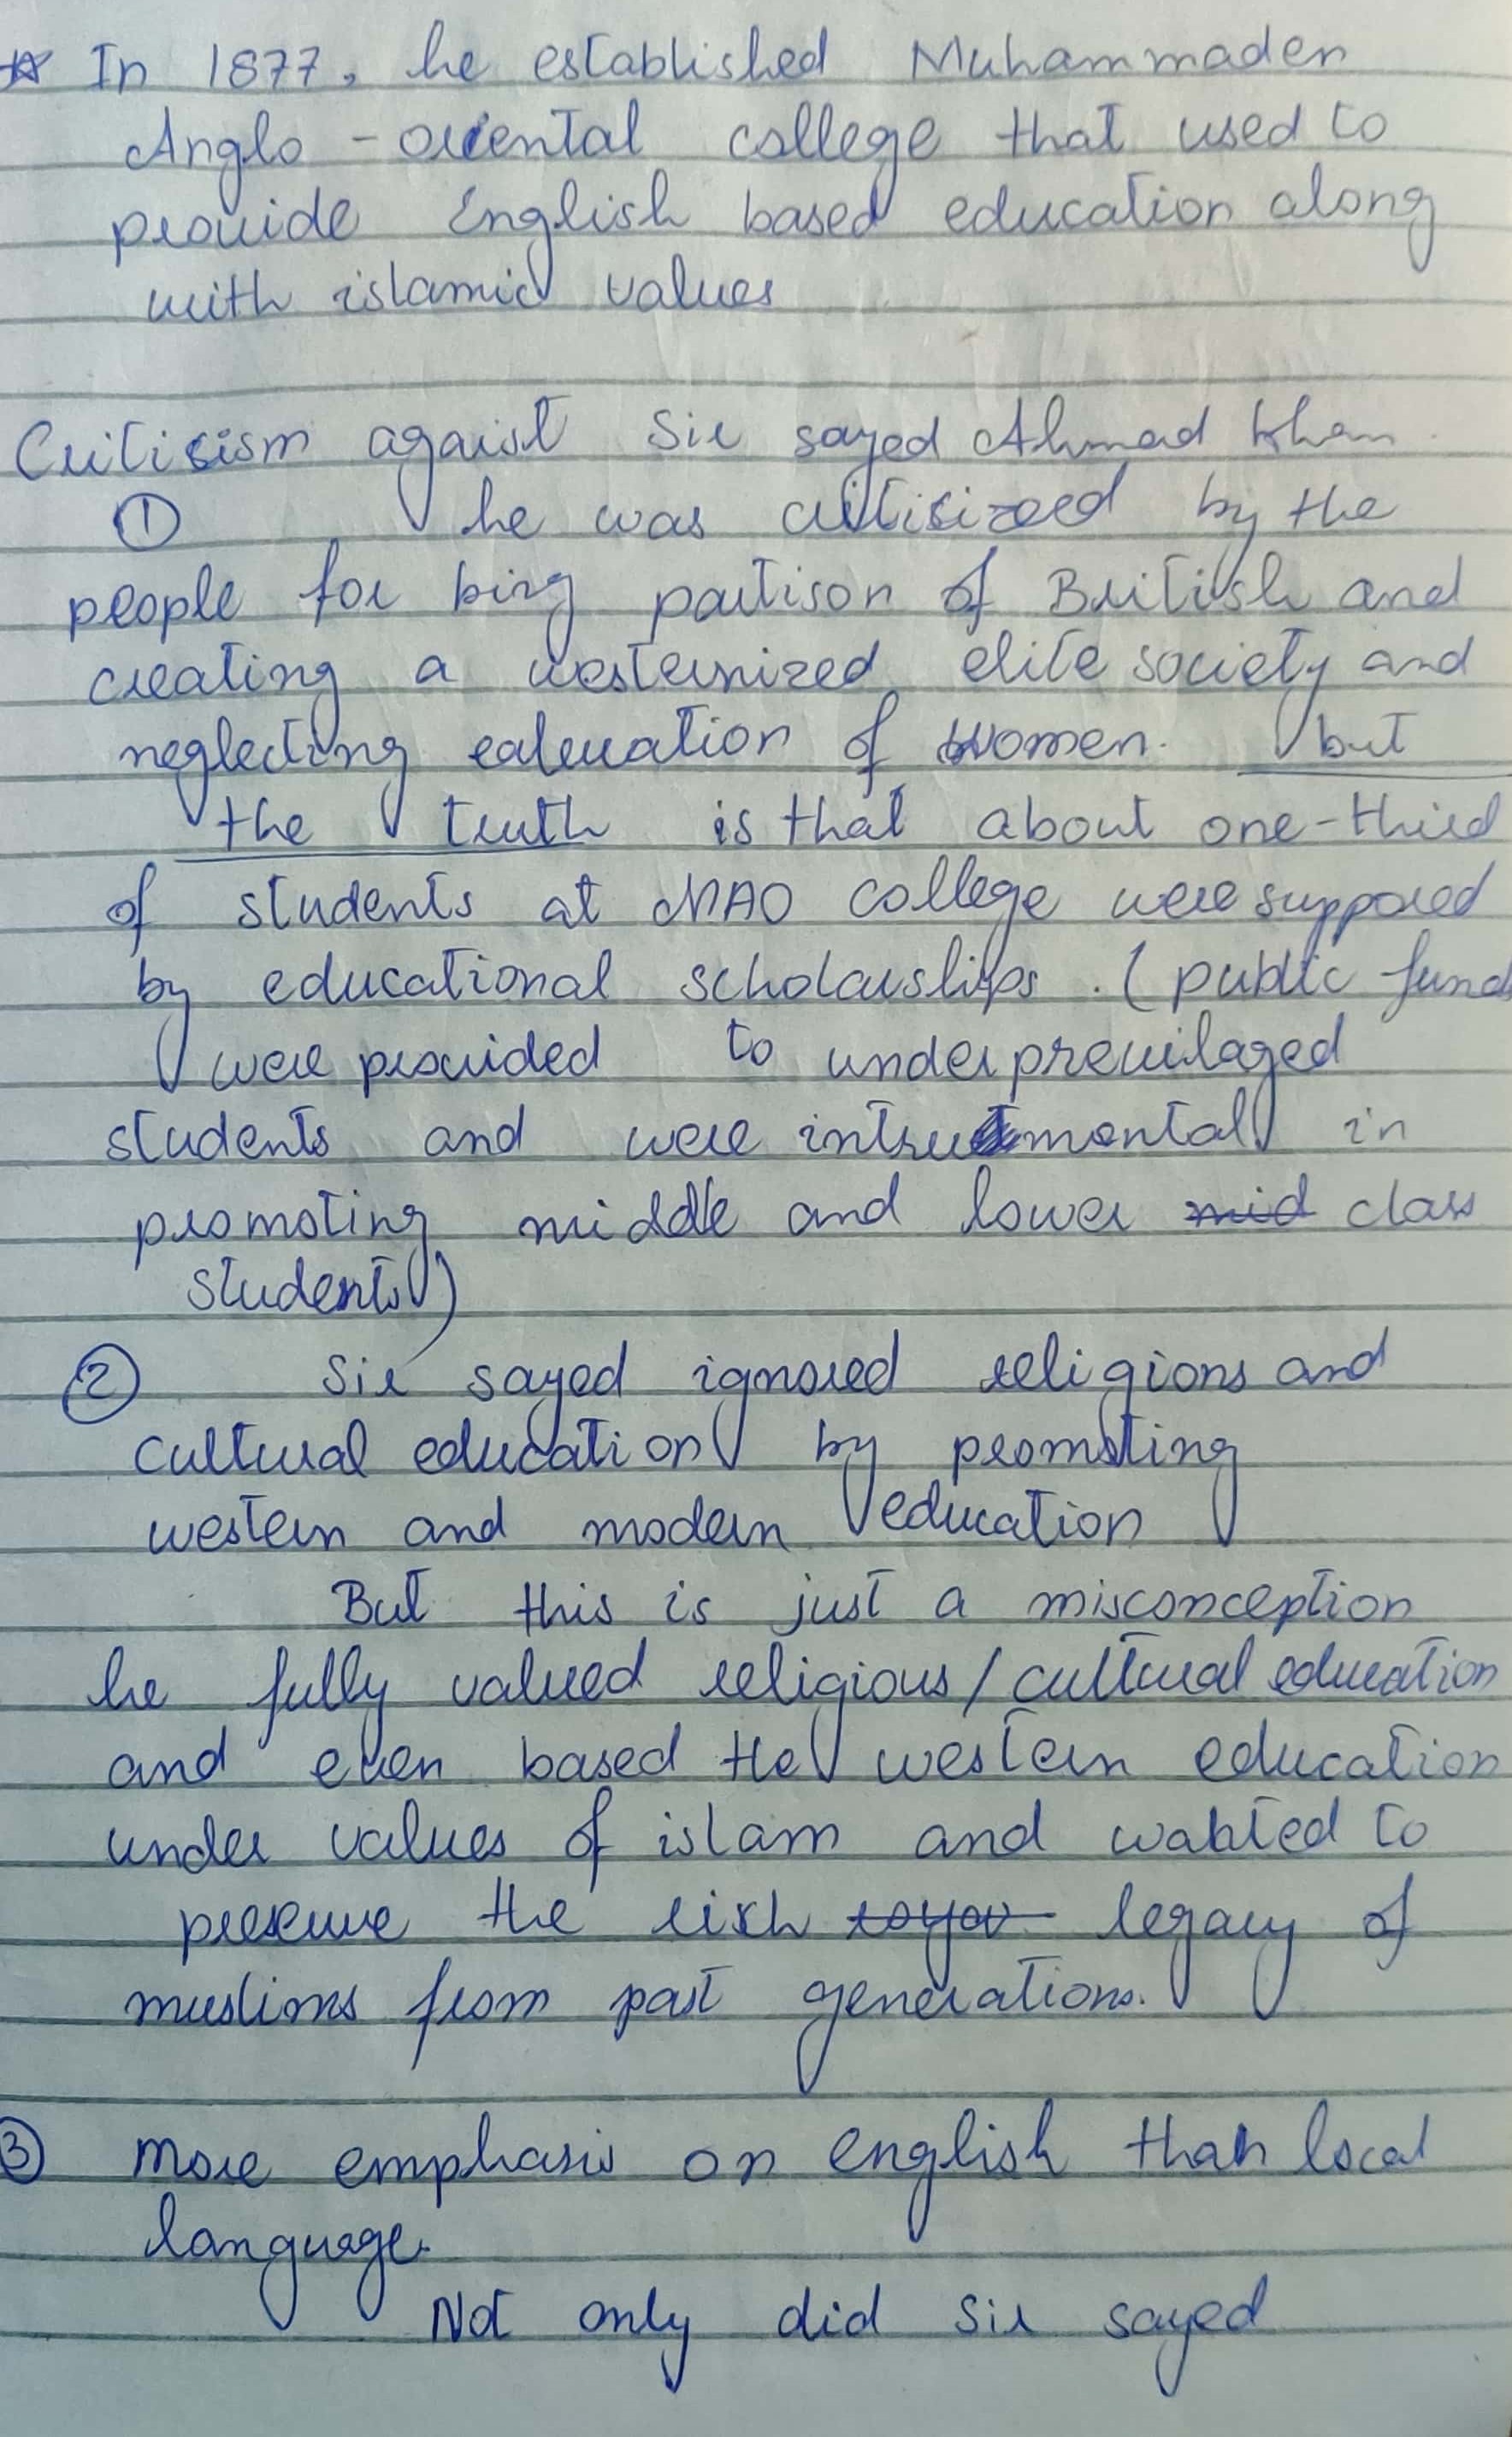 ☆ In 1877, he established Muhammaden
Anglo - oriental college that used to
provide English based education along
with islamic values
Critisism agaist Sir sayed Ahmad Khan.
① he was critisized by the
people for bing partison of British and
creating a westernized elite society and
neglecting ealucation of women. but
the truth is that about one-third
of students at MAO college were suppored
by educational scholarships. (public funds
were provided to underprevilaged
students and were intrumental in
promoting middle and lower mid class
students)
② Sir sayed ignored religions and
cultural education by promoting
western and modern education
But this is just a misconception
he fully valued religious/cultural education
and even based the western education
under values of islam and wabted to
preserve the rich legacy of
muslims from past generations.
③ More emphasis on english than local
language.
Not only did Sir sayed